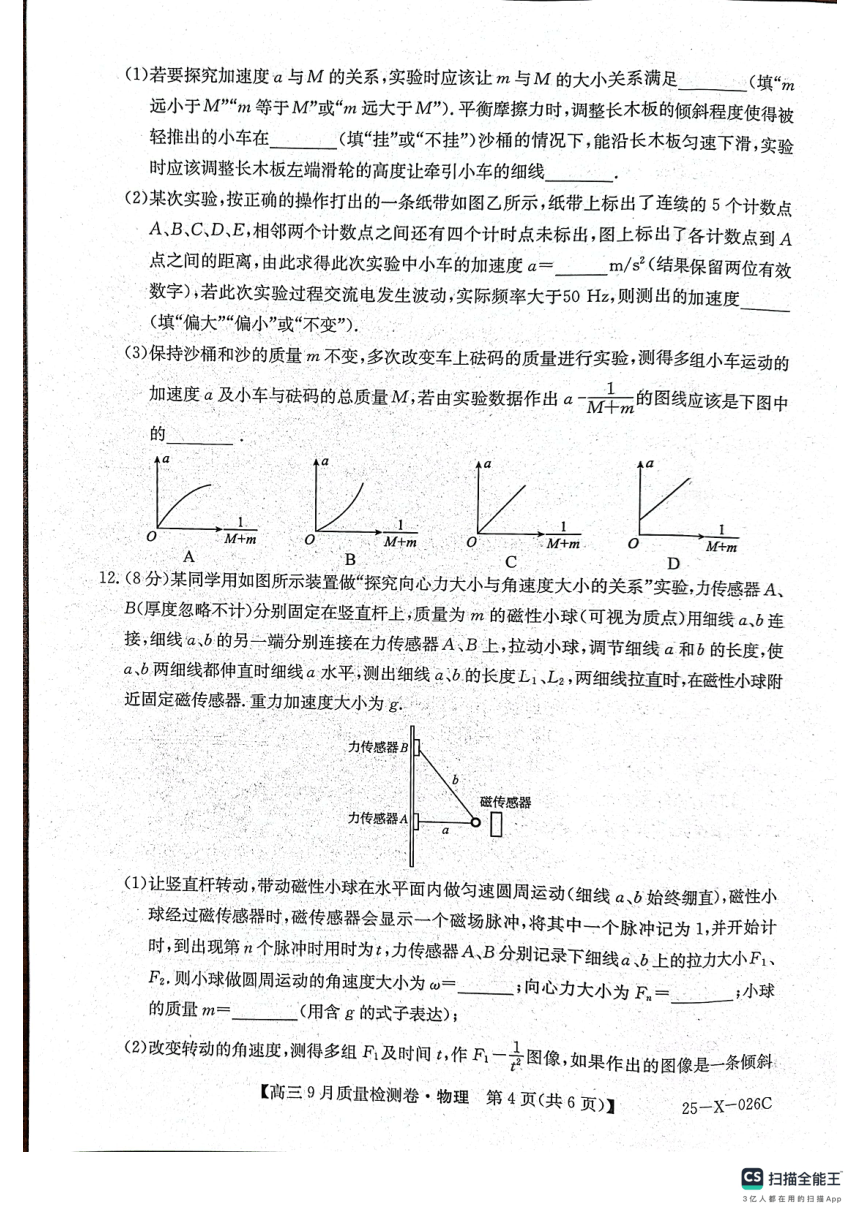 (1)若要探究加速度 a 与 M 的关系,实验时应该让 m 与 M 的大小关系满足______(填“m
远小于 M”“m 等于 M”或“m 远大于 M”). 平衡摩擦力时,调整长木板的倾斜程度使得被
轻推出的小车在______(填“挂”或“不挂”)沙桶的情况下,能沿长木板匀速下滑,实验
时应该调整长木板左端滑轮的高度让牵引小车的细线______.
(2)某次实验,按正确的操作打出的一条纸带如图乙所示,纸带上标出了连续的 5 个计数点
A、B、C、D、E,相邻两个计数点之间还有四个计时点未标出,图上标出了各计数点到 A
点之间的距离,由此求得此次实验中小车的加速度 a=______m/s²(结果保留两位有效
数字),若此次实验过程交流电发生波动,实际频率大于50 Hz,则测出的加速度______
(填“偏大”“偏小”或“不变”).
(3)保持沙桶和沙的质量 m 不变,多次改变车上砝码的质量进行实验,测得多组小车运动的
加速度 a 及小车与砝码的总质量 M,若由实验数据作出 a-1/(M+m)的图线应该是下图中
的______.
a a a a
O 1/(M+m) O 1/(M+m) O 1/(M+m) O 1/(M+m)
A B C D
12. (8 分)某同学用如图所示装置做“探究向心力大小与角速度大小的关系”实验,力传感器 A、
B(厚度忽略不计)分别固定在竖直杆上,质量为 m 的磁性小球(可视为质点)用细线 a、b 连
接,细线 a、b 的另一端分别连接在力传感器 A、B 上,拉动小球,调节细线 a 和 b 的长度,使
a、b 两细线都伸直时细线 a 水平,测出细线 a、b 的长度 L₁、L₂,两细线拉直时,在磁性小球附
近固定磁传感器. 重力加速度大小为 g.
力传感器B
b
磁传感器
力传感器A
a
(1)让竖直杆转动,带动磁性小球在水平面内做匀速圆周运动(细线 a、b 始终绷直),磁性小
球经过磁传感器时,磁传感器会显示一个磁场脉冲,将其中一个脉冲记为 1,并开始计
时,到出现第 n 个脉冲时用时为 t,力传感器 A、B 分别记录下细线 a、b 上的拉力大小 F₁、
F₂. 则小球做圆周运动的角速度大小为 ω=______;向心力大小为 Fₙ=______;小球
的质量 m=______(用含 g 的式子表达);
(2)改变转动的角速度,测得多组 F₁及时间 t,作 F₁-1/t²图像,如果作出的图像是一条倾斜
【高三 9 月质量检测卷·物理 第 4 页(共 6 页)】 25-X-026C
CS 扫描全能王
3亿人都在用的扫描App